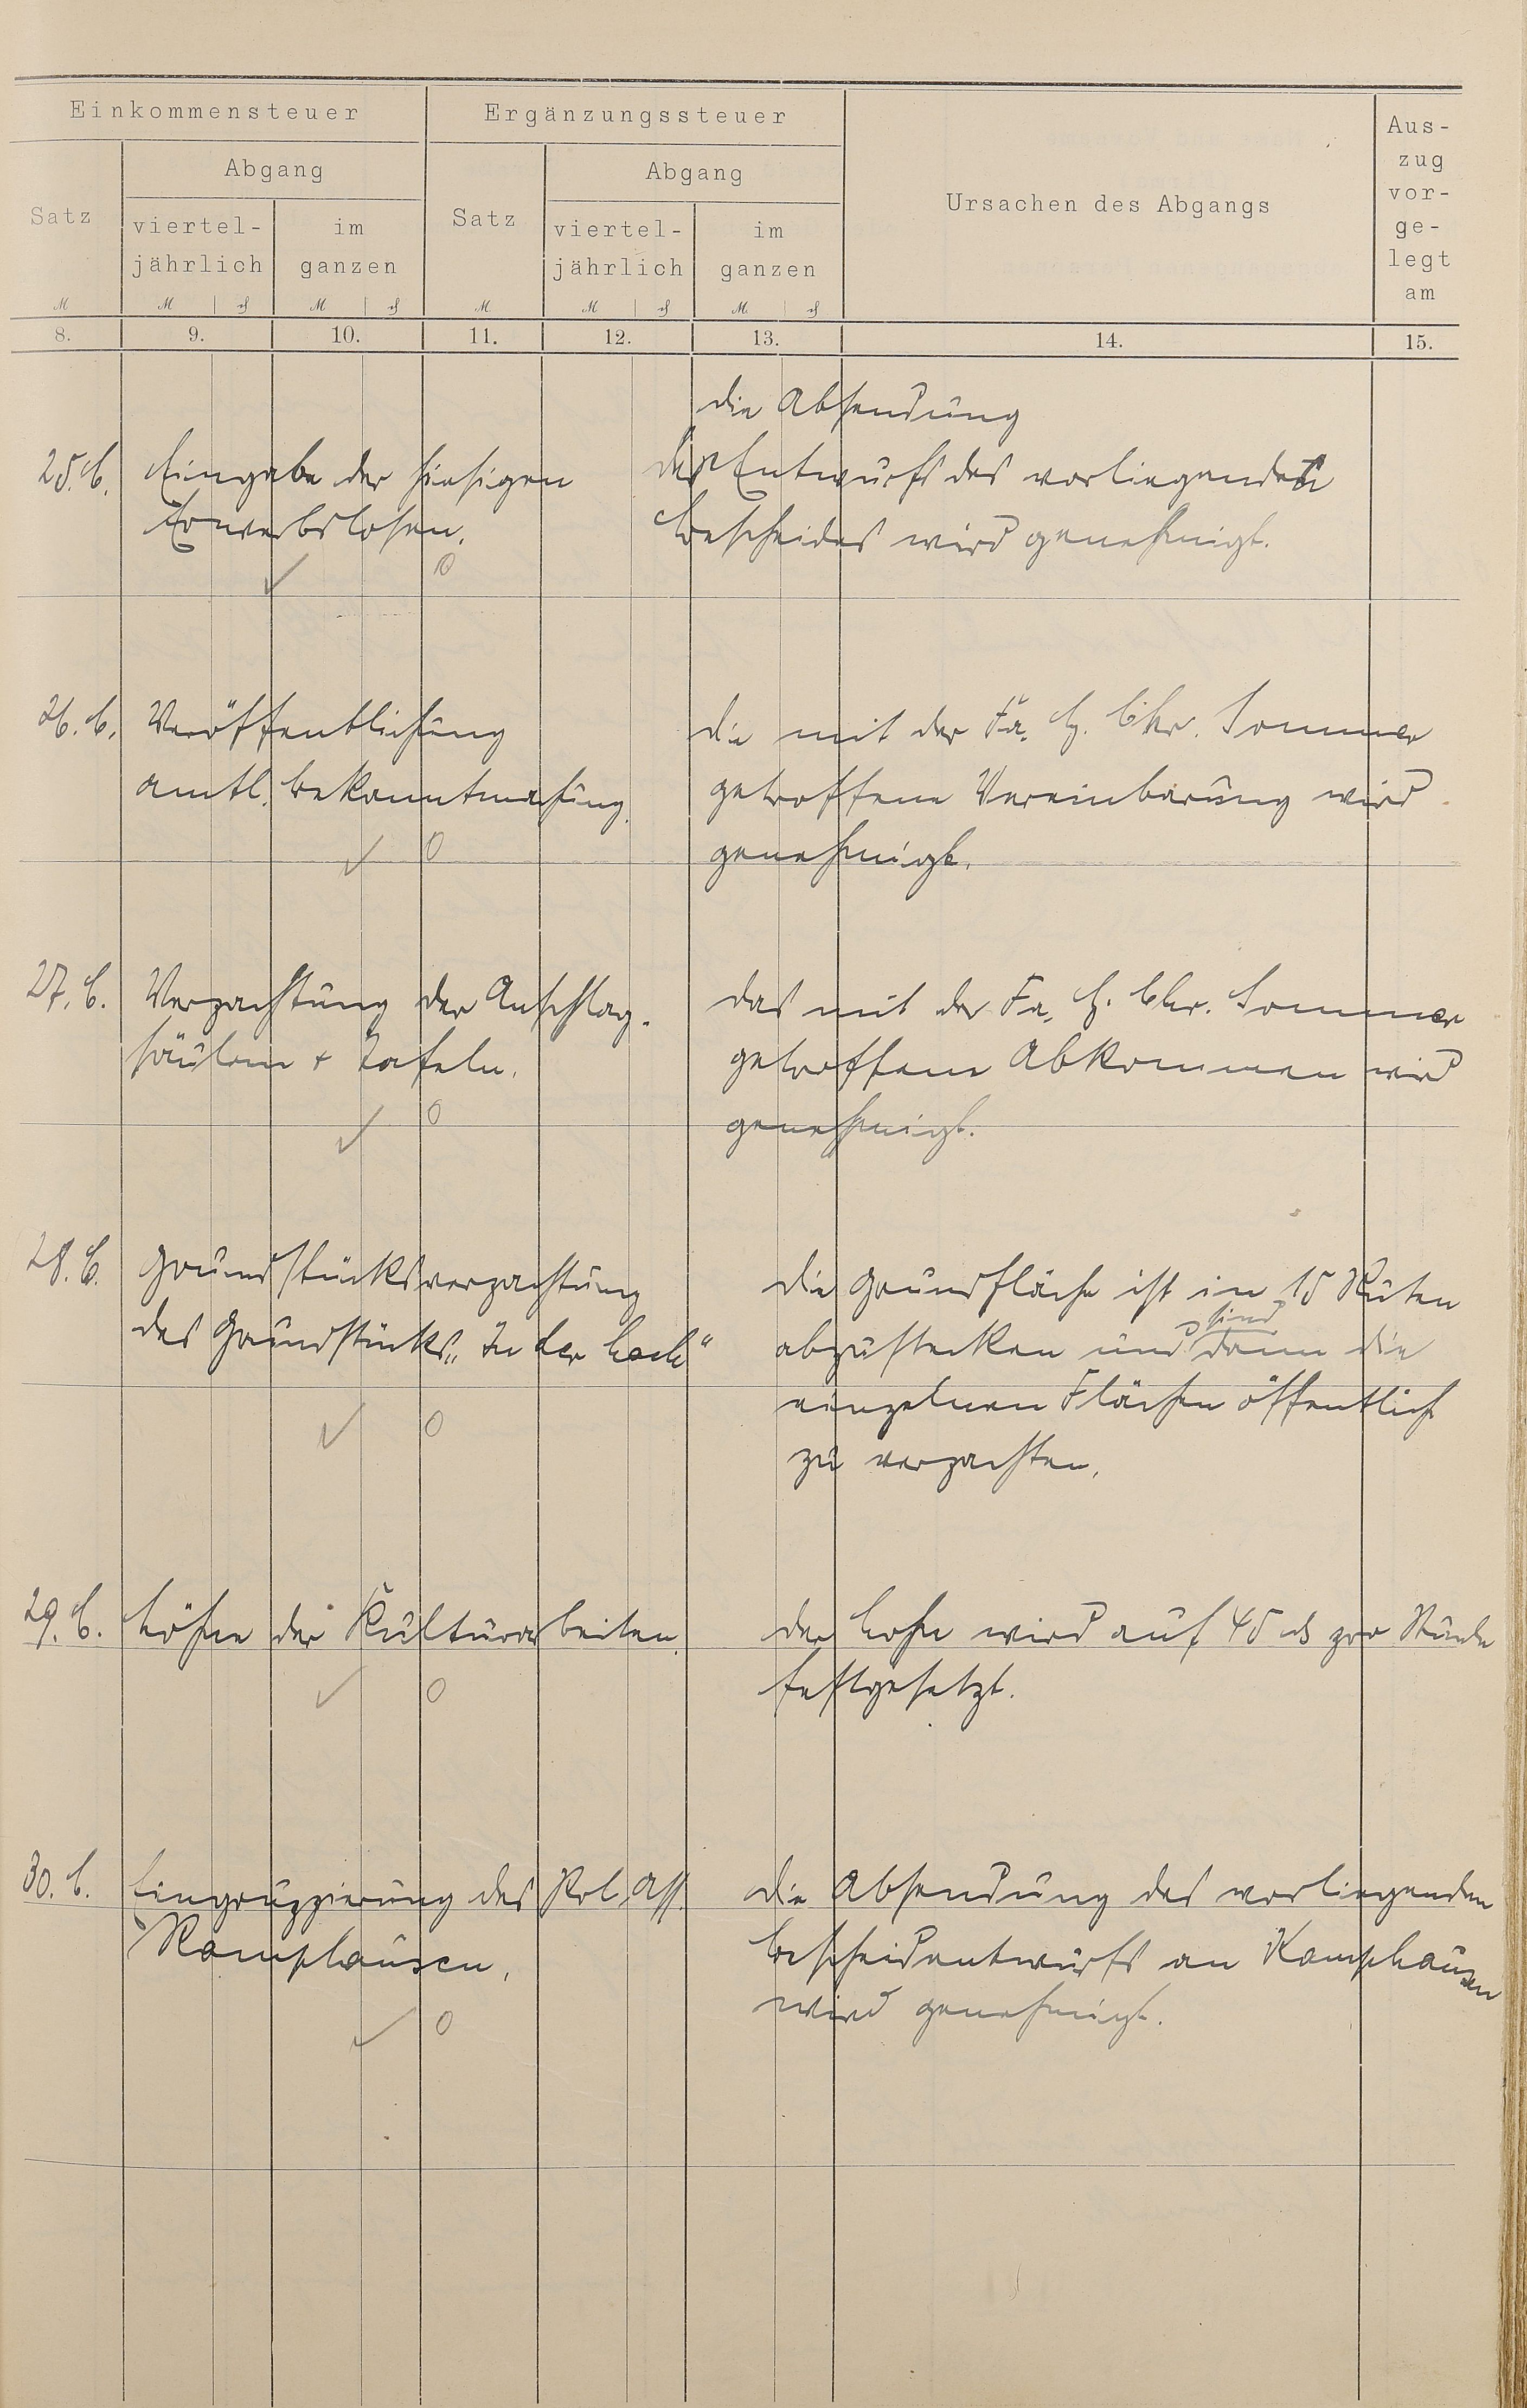 Einkommensteuer
Ergänzungssteuer
Ursachen des Abgangs
Aus-
zug
vor-
ge-
legt
am
Satz
Abgang
viertel-
jährlich
im
ganzen
Satz
Abgang
viertel-
jährlich
im
ganzen
M
M
₰
M
₰
M
M
₰
M
₰
8. 9. 10. 11. 12. 13. 14. 15.
die Absendung
25. C. Eingabe der hiesigen
Erwerbslosen.
des Entwurfs des vorliegenden
Bescheides wird genehmigt.
✓ 0
26. C. Veröffentlichung
amtl. Bekanntmachung.
die mit der Fa. H. Chr. Sommer
getroffene Vereinbarung wird
genehmigt.
✓ 0
27. C. Verpachtung der Anschlag-
säulen + Tafeln.
das mit der Fa. H. Chr. Sommer
getroffene Abkommen wird
genehmigt.
✓ 0
28. C. Grundstücksverpachtung
des Grundstücks „In der Bach"
die Grundfläche ist in 15 Ruten
sind
abzustecken und dann die
einzelnen Flächen öffentlich
zu verpachten.
✓ 0
29. C. Löhne der Kulturarbeiten.
der Lohn wird auf 45 ₰ pro Stunde
festgesetzt.
✓ 0
30. C. Eingruppierung des Pol. Ass.
Kamphausen.
die Absendung des vorliegenden
Bescheidentwurfs an Kamphausen
wird genehmigt.
✓ 0